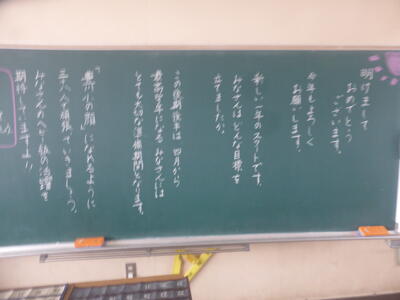 明けまして
おめでとう
ございます。
今年もよろしく
お願いします。
新しい一年のスタートです。
みなさんはどんな目標を
立てましたか。
この後期後半は四月から
最高学年になるみなさんには
とても大切な準備期間となります。
小の顔」になれるように
頑張っていきましょう。
みなさんの
の活躍を
期待していますよ!!